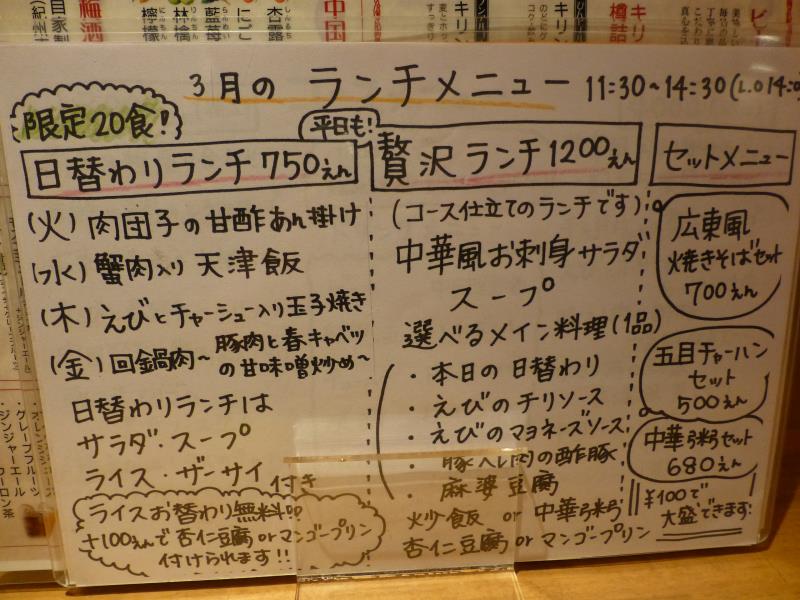 3月の ランチメニュー 11:30~14:30(L.O14:0
限定20食!
日替わりランチ750えん
(火)肉団子の甘酢あん掛け
(水)蟹肉入り 天津飯
(木)えびとチャーシュー入り玉子焼き
(金)回鍋肉~豚肉と春キャベツ
の甘味噌炒め~
日替わりランチは
サラダ・スープ
ライス・ザーサイ 付き
ライスお替わり無料!!
+100えんで 杏仁豆腐 or マンゴープリン
付けられます!!
平日も!
贅沢ランチ1200えん
(コース仕立てのランチです)
中華風お刺身サラダ
スープ
選べるメイン料理(1品)
・本日の日替わり
・えびのチリソース
・えびのマヨネーズソース
・豚ヘレ肉の酢豚
・麻婆豆腐
炒飯 or 中華粥
杏仁豆腐 or マンゴープリン
セットメニュー
広東風
焼きそばセット
700えん
五目チャーハン
セット
500えん
中華粥セット
680えん
¥100で
大盛できます!
梅酒
自家製
(紀州
檸檬
林檎
藍苺
にごり
杏露
中国
キリン
キリ
樽詰
ジンジャーエール
グレープフルーツ
オレンジジュース
ウーロン茶